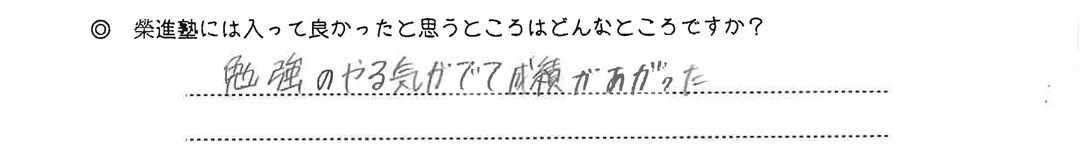 ◎ 榮進塾には入って良かったと思うところはどんなところですか?
勉強のやる気がでて成績があがった